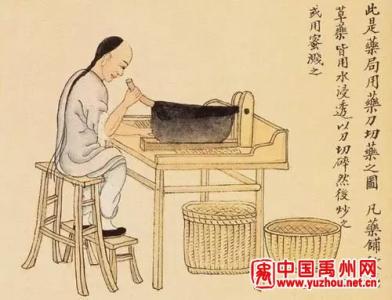 此是藥局用藥刀切藥之圖 凡藥舖
草藥皆用水浸透以刀切碎然後炒之
或用蜜
之
中国禹州网
www.yuzhou.net.cn